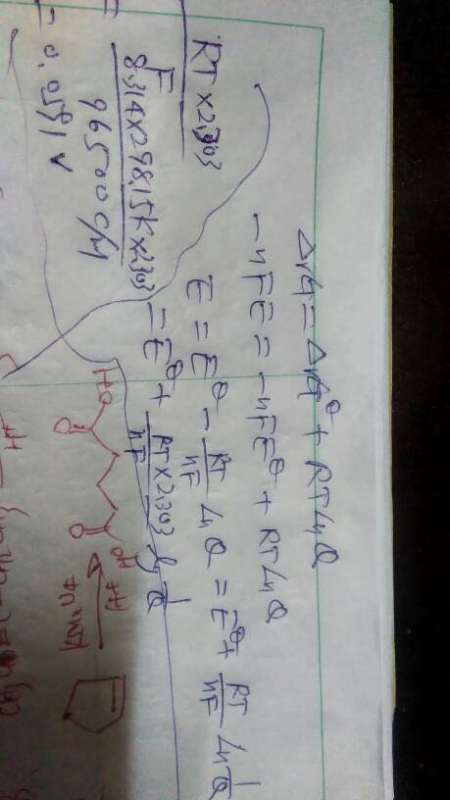 ΔrG = ΔrG⊖ + RT ln Q
-nFE = -nFE⊖ + RT ln Q
E = E⊖ - RT/nF ln Q = E⊖ + RT/nF ln 1/Q
= E⊖ + RT×2.303/nF lg 1/Q
RT×2.303/F
= 8.314×298.15K×2.303/96500 C/M
= 0.0591 V
KMnO4
H+
OH
O
O
HO
H+